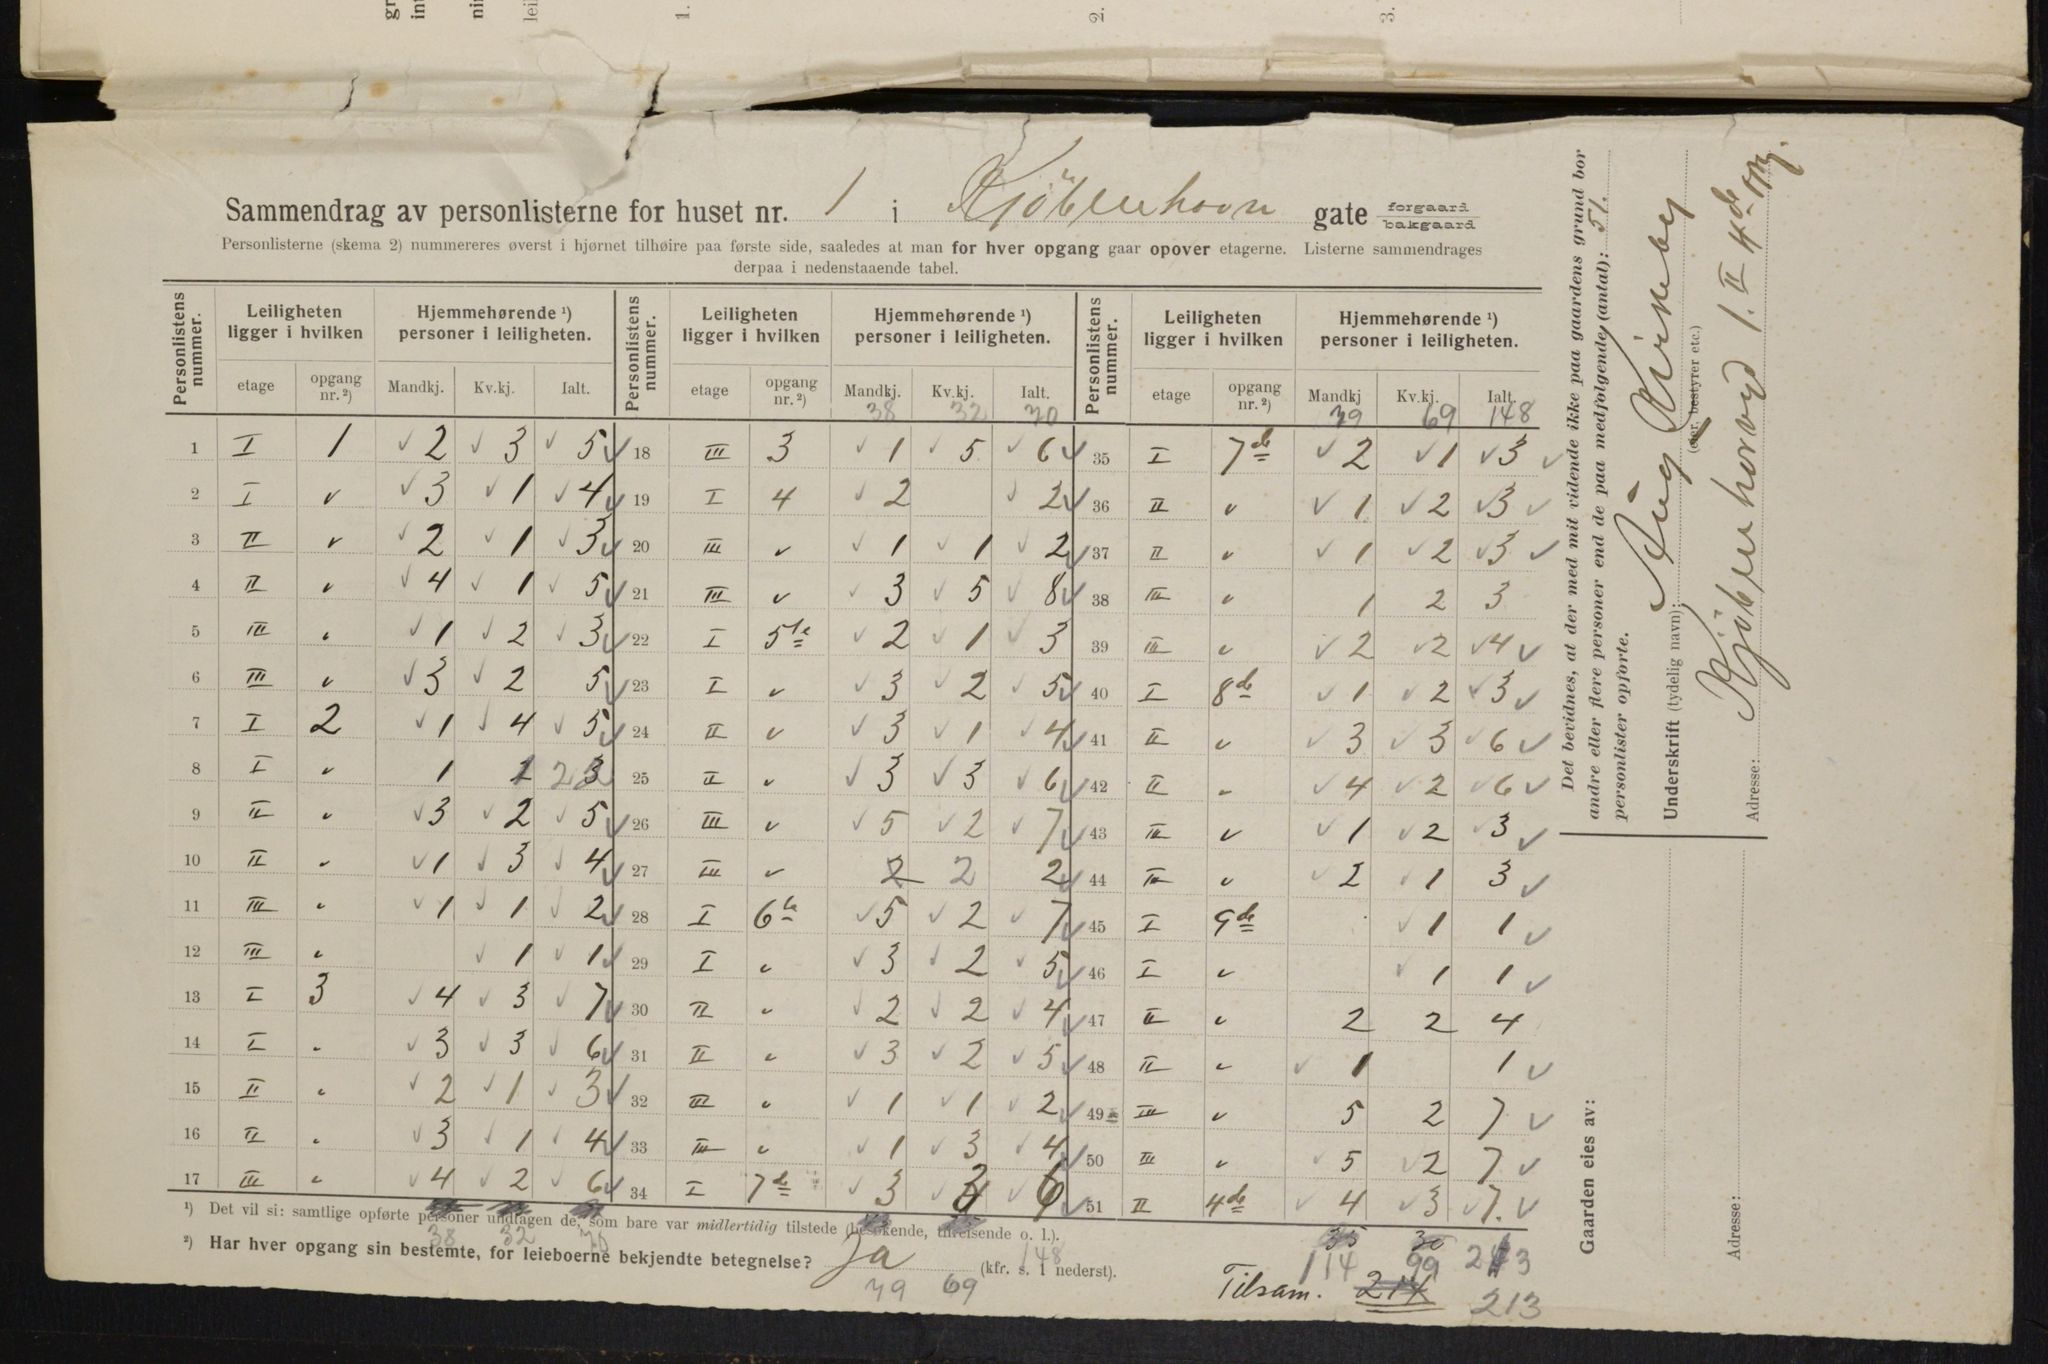 1.
2.
3.
Sammendrag av personlisterne for huset nr. 1 i Kjöbenhavn gate forgaard bakgaard
Personlisterne (skema 2) nummereres øverst i hjørnet tilhøire paa første side, saaledes at man for hver opgang gaar opover etagerne. Listerne sammendrages
derpaa i nedenstaaende tabel.
Personlistens nummer. Leiligheten ligger i hvilken Hjemmehørende ¹) personer i leiligheten. Personlistens nummer. Leiligheten ligger i hvilken Hjemmehørende ¹) personer i leiligheten. Personlistens nummer. Leiligheten ligger i hvilken Hjemmehørende ¹) personer i leiligheten.
etage opgang nr.²) Mandkj. Kv.kj. Ialt. etage opgang nr.²) Mandkj. Kv.kj. Ialt. etage opgang nr.²) Mandkj Kv.kj. Ialt.
38 32 70 79 69 148
1 I 1 2 3 5 18 III 3 1 5 6 35 I 7de 2 1 3
2 I " 3 1 4 19 I 4 2 2 36 II " 1 2 3
3 II " 2 1 3 20 III " 1 1 2 37 II " 1 2 3
4 II " 4 1 5 21 III " 3 5 8 38 III " 1 2 3
5 III " 1 2 3 22 I 5te 2 1 3 39 III " 2 2 4
6 III " 3 2 5 23 I " 3 2 5 40 I 8de 1 2 3
7 I 2 1 4 5 24 II " 3 1 4 41 II " 3 3 6
8 I " 1 1 2 25 II " 3 3 6 42 II " 4 2 6
9 II " 3 2 5 26 III " 5 2 7 43 III " 1 2 3
10 II " 1 3 4 27 III " 2 2 2 44 III " 2 1 3
11 III " 1 1 2 28 I 6te 5 2 7 45 I 9de 1 1
12 III " 1 1 29 I " 3 2 5 46 I " 1 1
13 I 3 4 3 7 30 II " 2 2 4 47 II " 2 2 4
14 I " 3 3 6 31 II " 3 2 5 48 II " 1 1
15 II " 2 1 3 32 III " 1 1 2 49 III " 5 2 7
16 II " 3 1 4 33 III " 1 3 4 50 III " 5 2 7
17 III " 4 2 6 34 I 7de 3 51 II 4de 4 3 7.
¹) Det vil si: samtlige opførte personer undtagen de, som bare var midlertidig tilstede (besøkende, tilreisende o. l.).
38 32 70
²) Har hver opgang sin bestemte, for leieboerne bekjendte betegnelse? Ja (kfr. s. 1 nederst).
148
79 69
35 30
114 99 213
Tilsam. 214 213
Det bevidnes, at der med mit vidende ikke paa gaardens grund bor
andre eller flere personer end de paa medfølgende (antal): 51.
personlister opførte.
Underskrift (tydelig navn): Aug Kirkeby
(eier, bestyrer etc.)
Adresse: Kjöbenhavngd 1. II 4de opg.
Gaarden eies av:
Adresse: